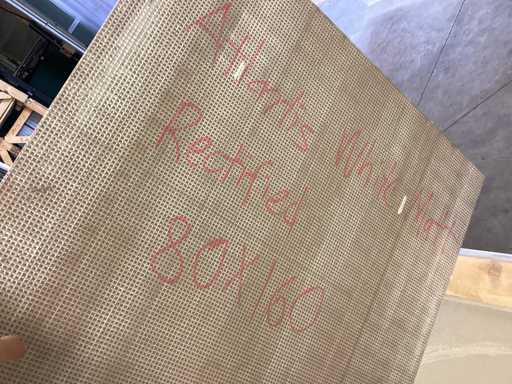 Atlantis White Mat
Rectified
80X160